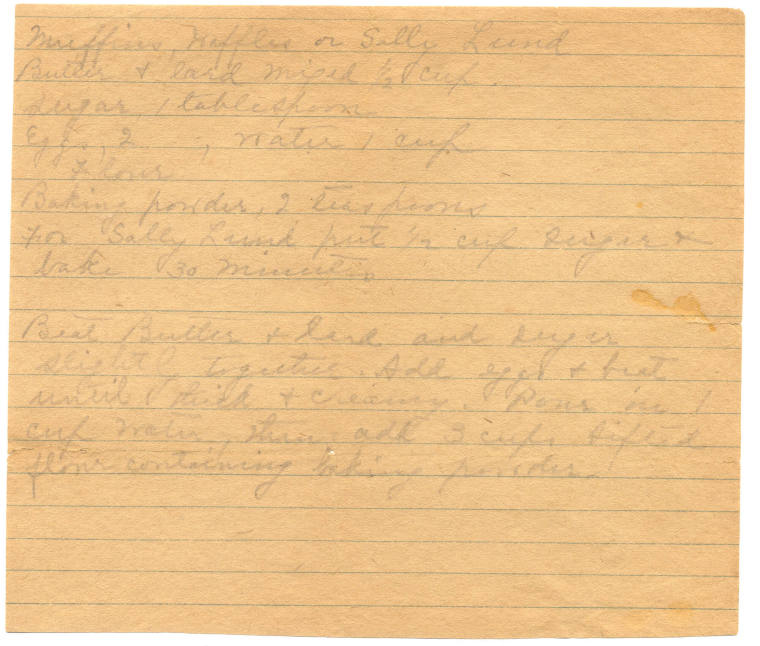 Muffins, Waffles or Sally Lund
Butter & lard mixed 1/2 cup.
Sugar, 1 tablespoon.
Eggs, 2 , water 1 cup
Flour
Baking powder, 2 teaspoons
For Sally Lund put 1/2 cup sugar &
bake 30 minutes
Beat Butter & lard and sugar
slightly together. Add eggs & beat
until thick & creamy. Pour in 1
cup water, than add 3 cups sifted
flour containing baking powder.